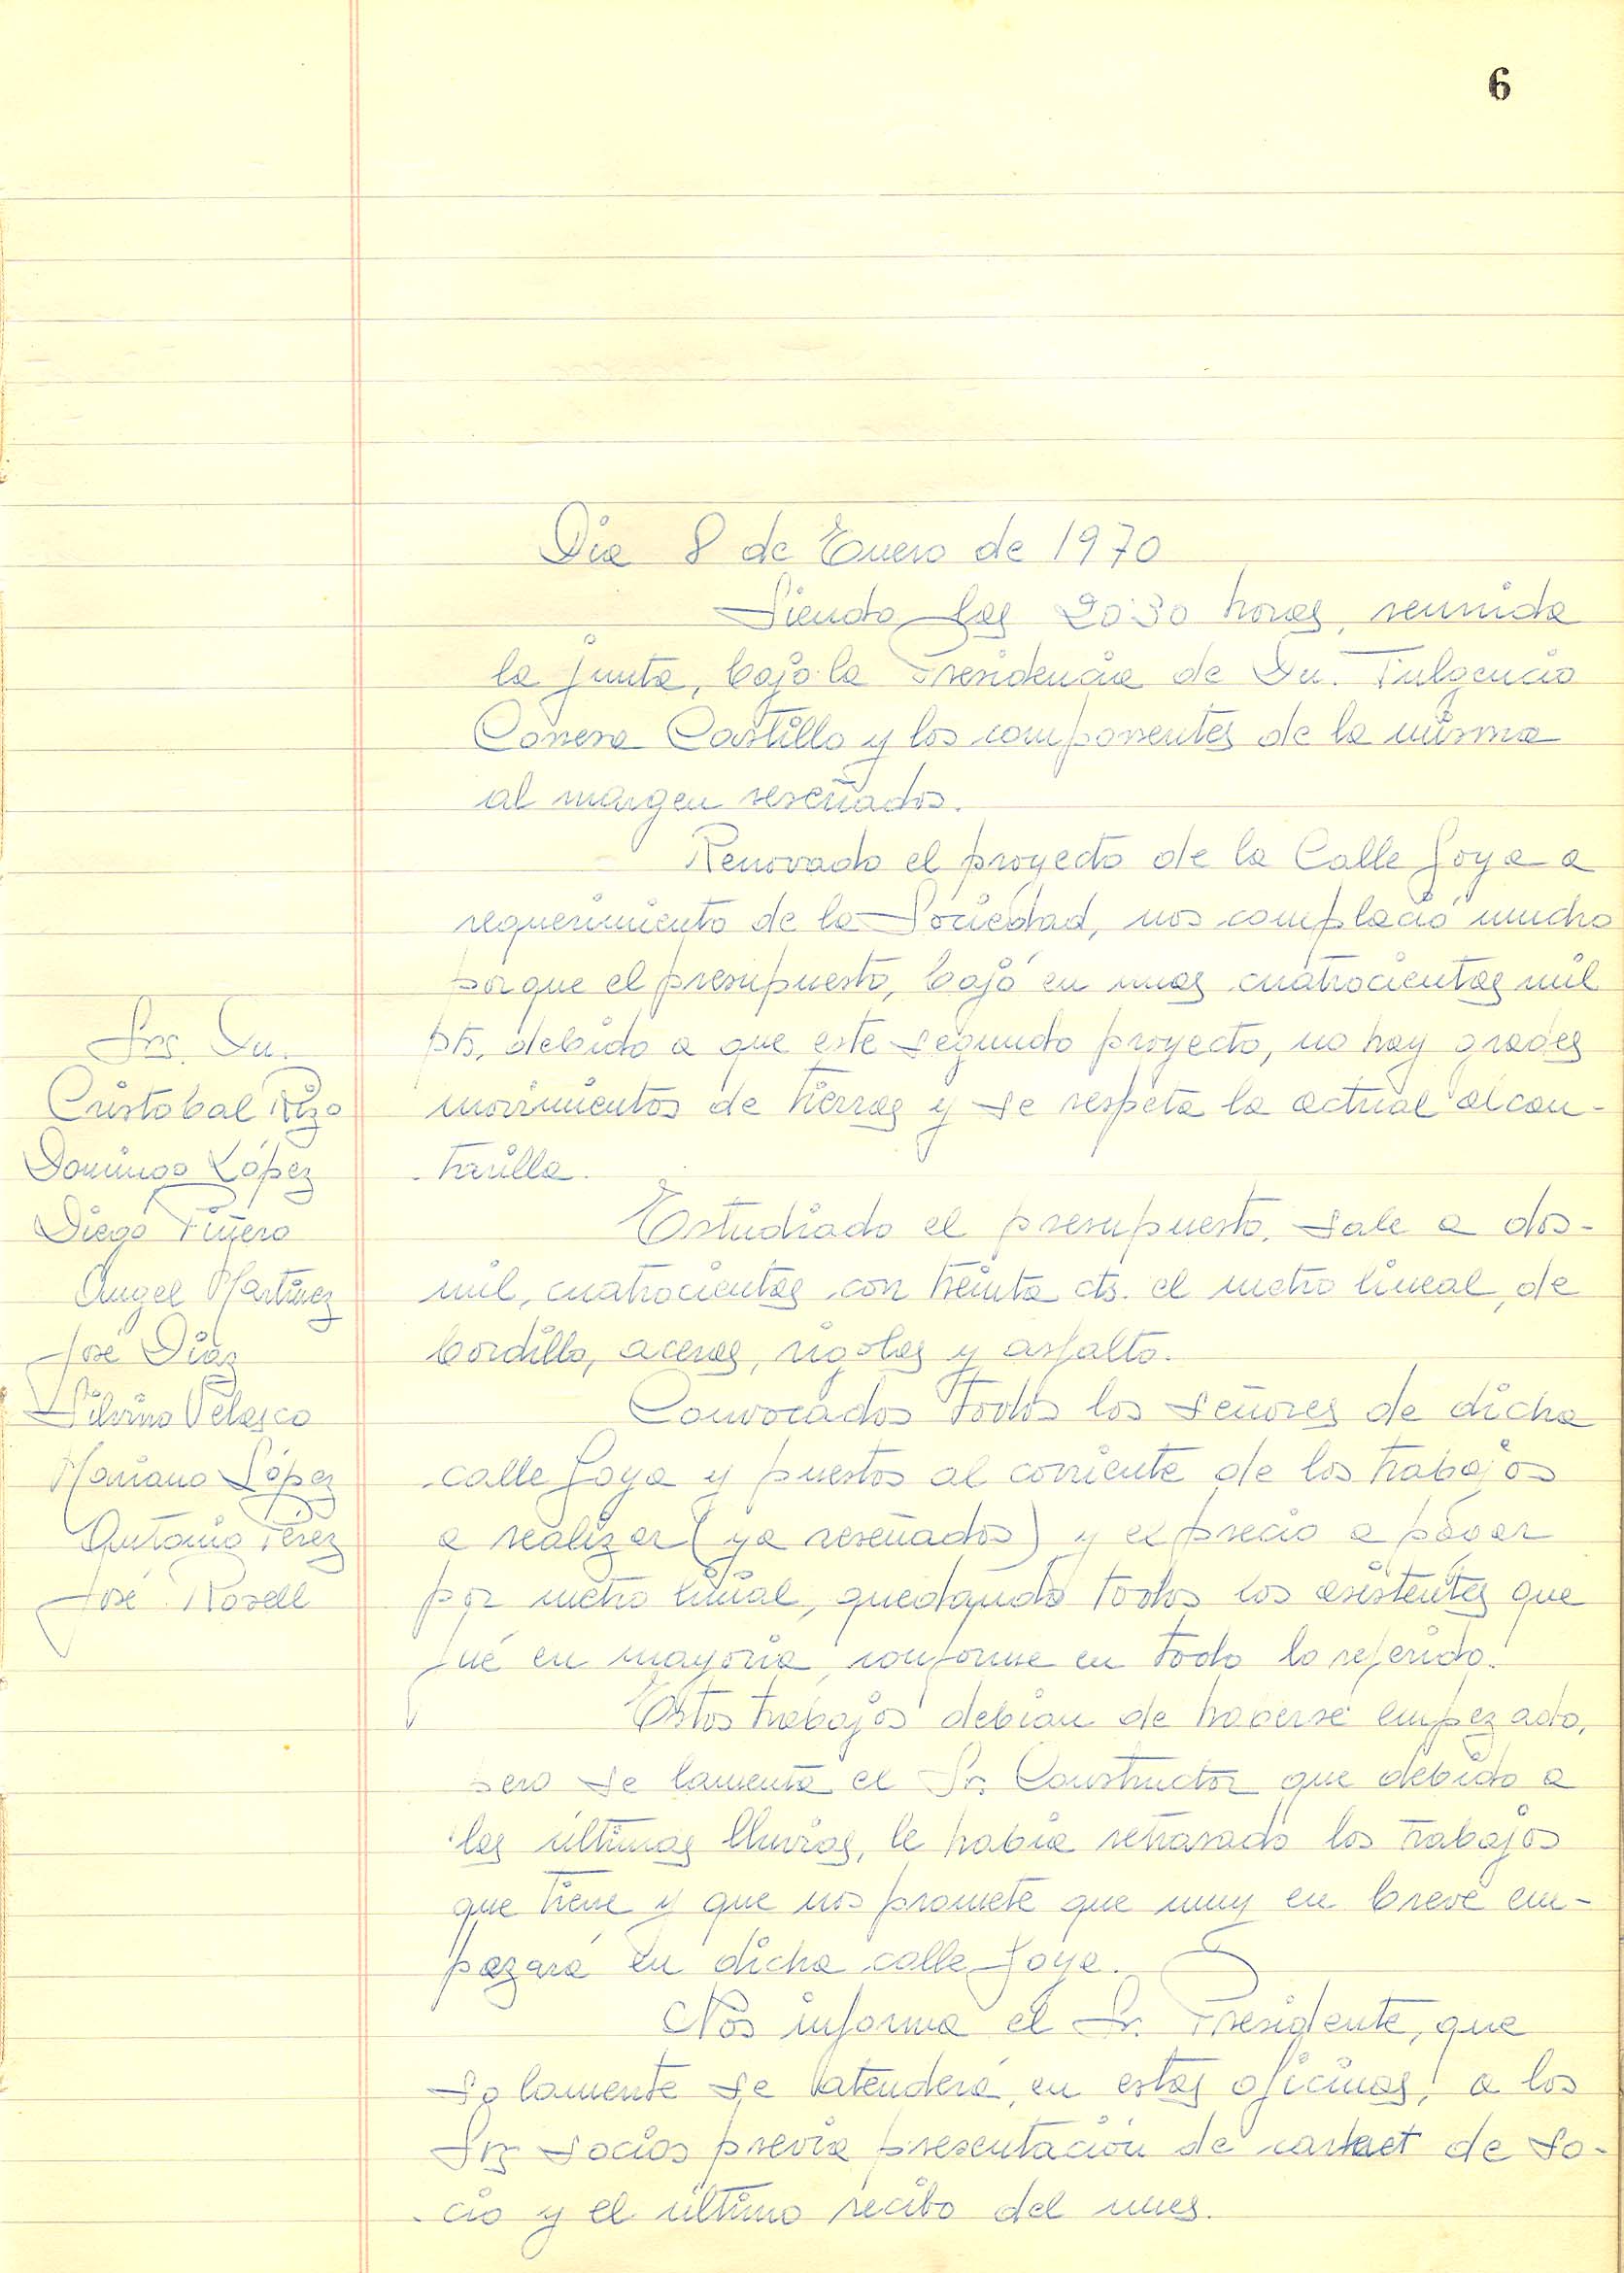 6
Dia 8 de Enero de 1970
Siendo las 20'30 horas, reunida
la junta, bajo la Presidencia de Dn. Fulgencio
Conesa Castillo y los componentes de la misma
al margen reseñados.
Renovado el proyecto de la Calle Goya a
requerimiento de la Sociedad, nos complació mucho
porque el presupuesto, bajó en unas cuatrocientas mil
pts, debido a que este segundo proyecto, no hay grades
movimientos de tierras y se respeta la actual alcan-
tarilla.
Estudiado el presupuesto, sale a dos-
mil, cuatrocientas con treinta cts. el metro lineal, de
bordillo, aceras, rigolas y asfalto.
Convocados todos los señores de dicha
calle Goya y puestos al corriente de los trabajos
a realizar (ya reseñados) y el precio a pagar
por metro lineal, quedando todos los asistentes que
fué en mayoria conforme en todo lo referido.
Estos trabajos debian de haberse empezado,
pero se lamenta el Sr. Constructor que debido a
las últimas lluvias, le habia retrasado los trabajos
que tiene y que nos promete que muy en breve em-
pezará en dicha calle Goya.
Nos informa el Sr. Presidente, que
solamente se atenderá, en estas oficinas, a los
Srs socios previa presentación de carnet de so-
cio y el último recibo del mes.
Srs. Dn.
Cristobal Rizo
Domingo López
Diego Piñero
Angel Martinez
José Diaz
Silvino Velasco
Mariano López
Antonio Perez
José Rosell